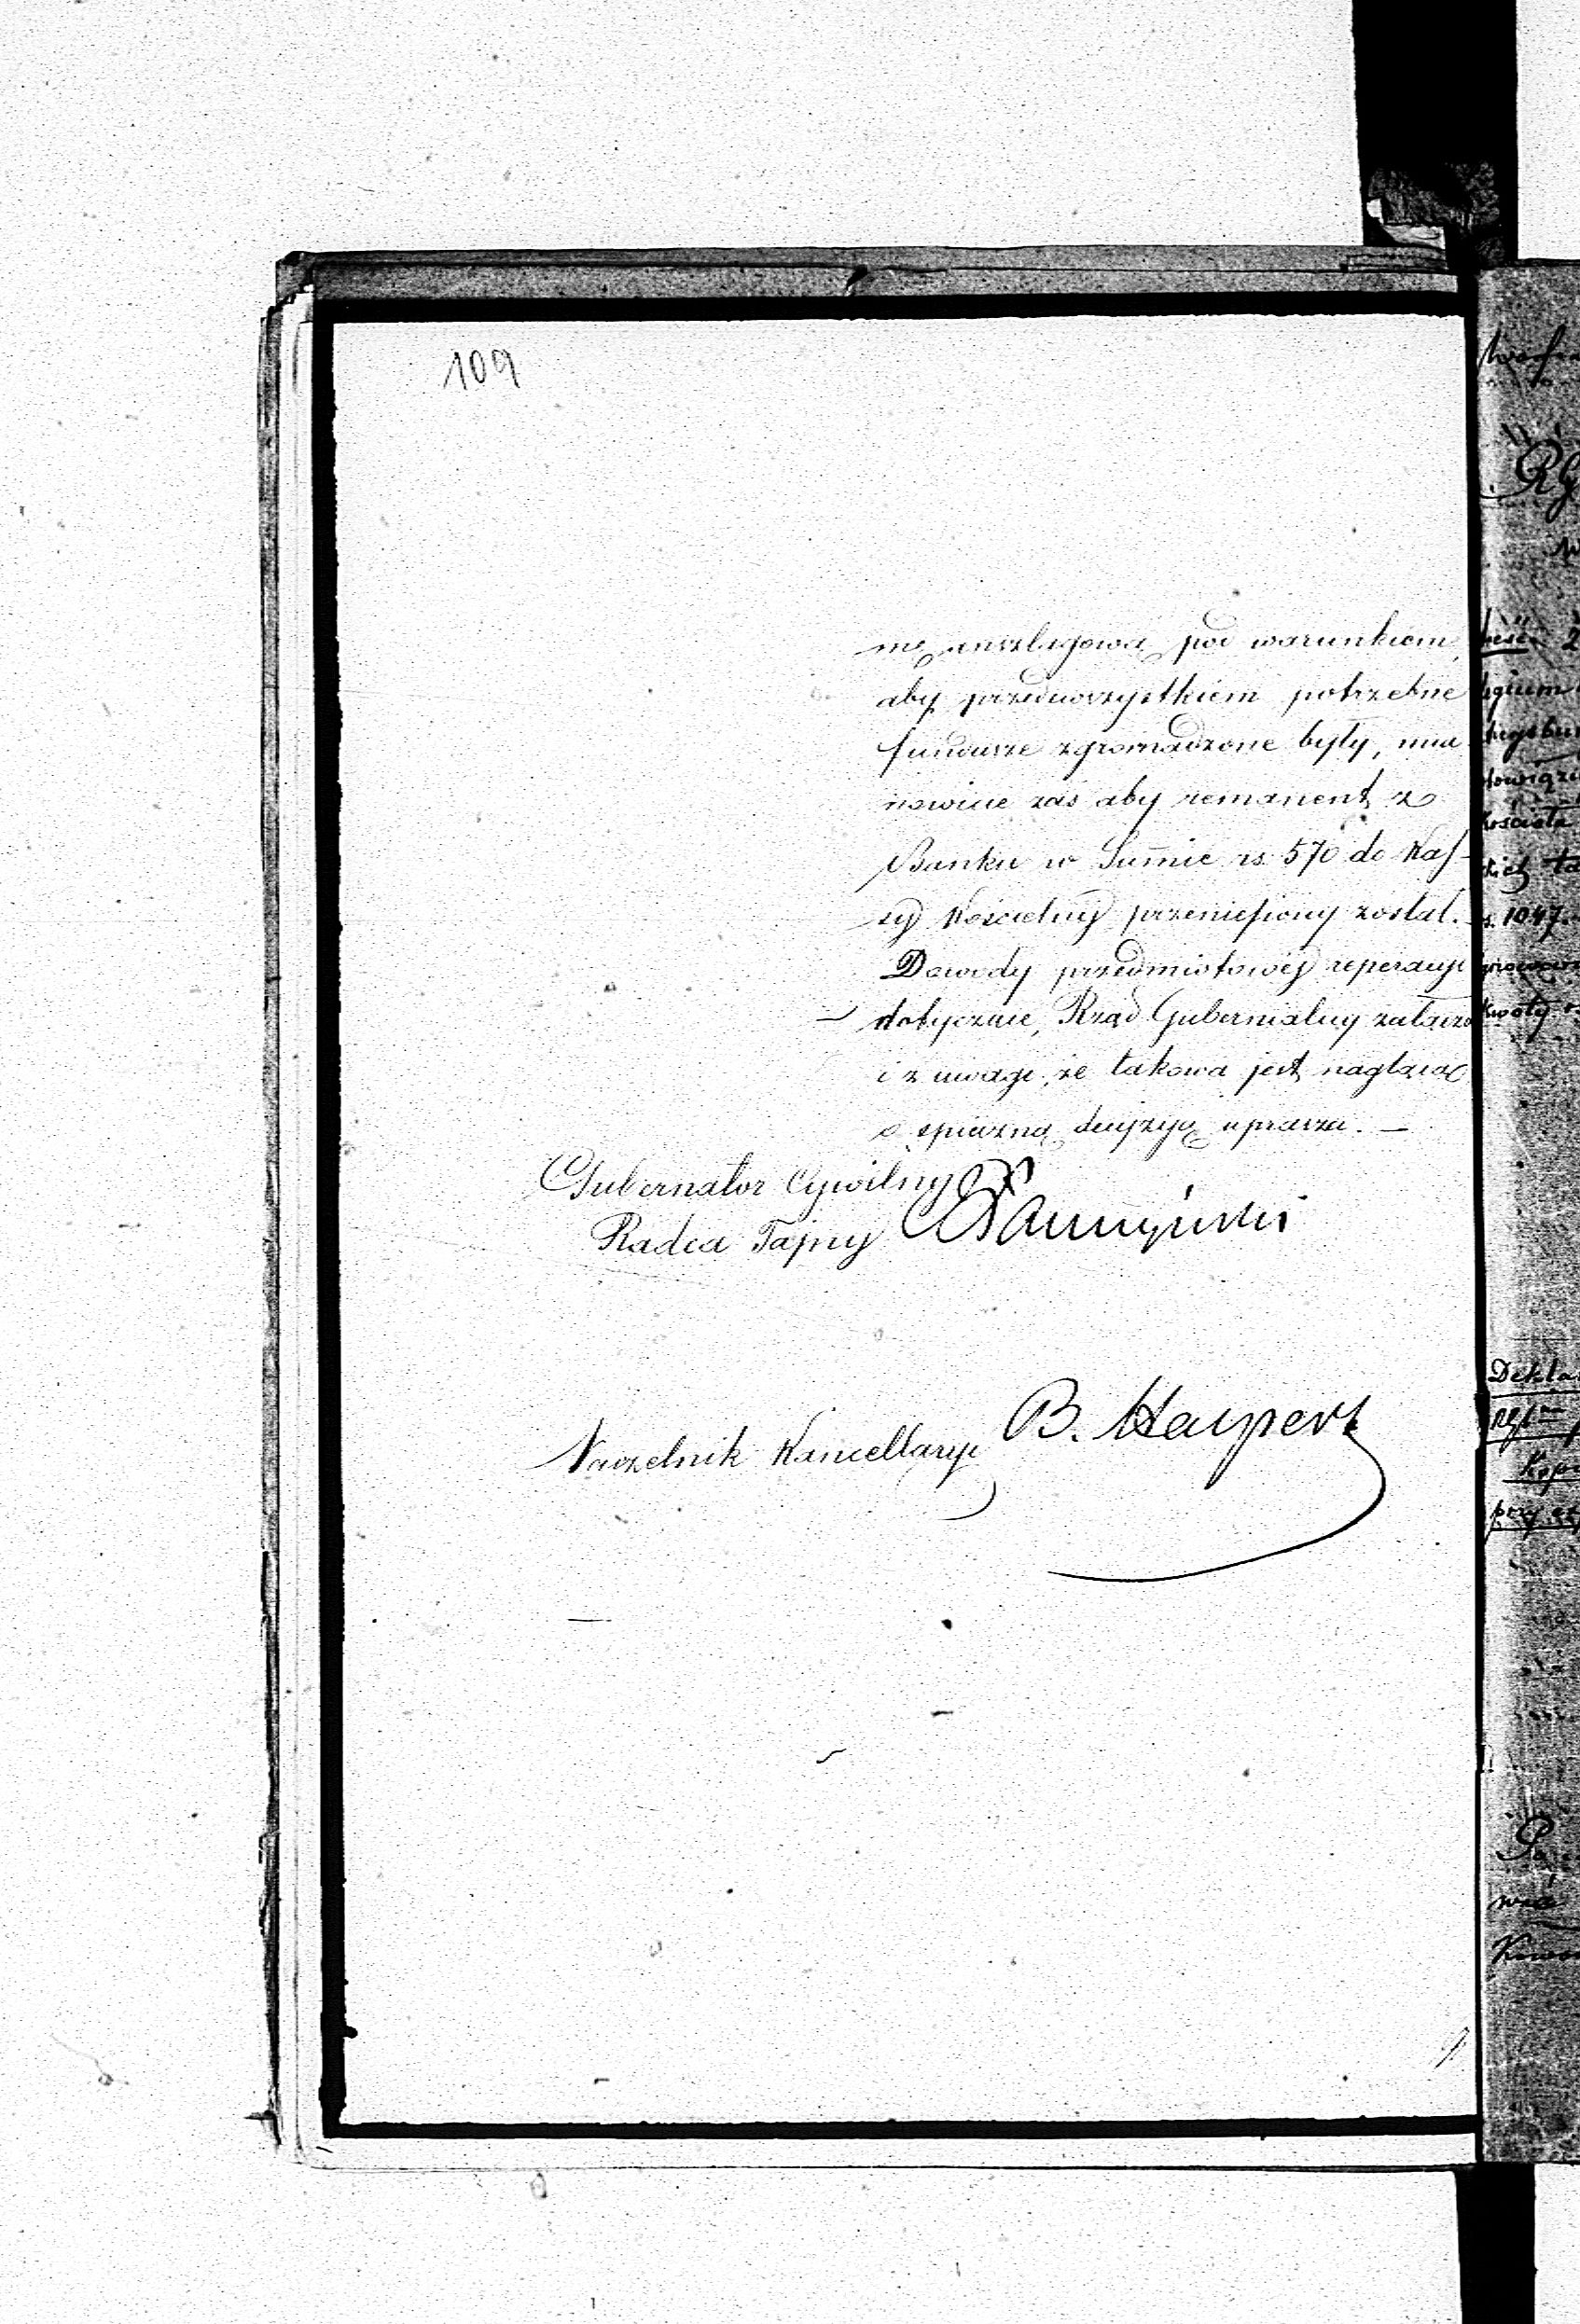 109
mę anszlagową pod warunkiem,
aby przedewszystkiem potrzebne
fundusze zgromadzone były, mia
nowicie zaś aby remanent z
Banku w Summie rs. 570 do Kas-
sy Kościelnej przeniesiony został.
Dowody przedmiotowej reperacyi
dotyczące, Rząd Gubernialny załącza
i z uwagi, że takowa jest naglącą
o spieszną decyzyą uprasza. —
Gubernator Cywilny
Radca Tajny
Naczelnik Kancellaryi B. Halpert
Rg
2
kościoła
s. 1047.
kwoty
Dekla
Kopi
przy